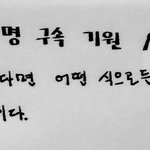 명 구속 기원
다면 어떤 식으로든
이다.